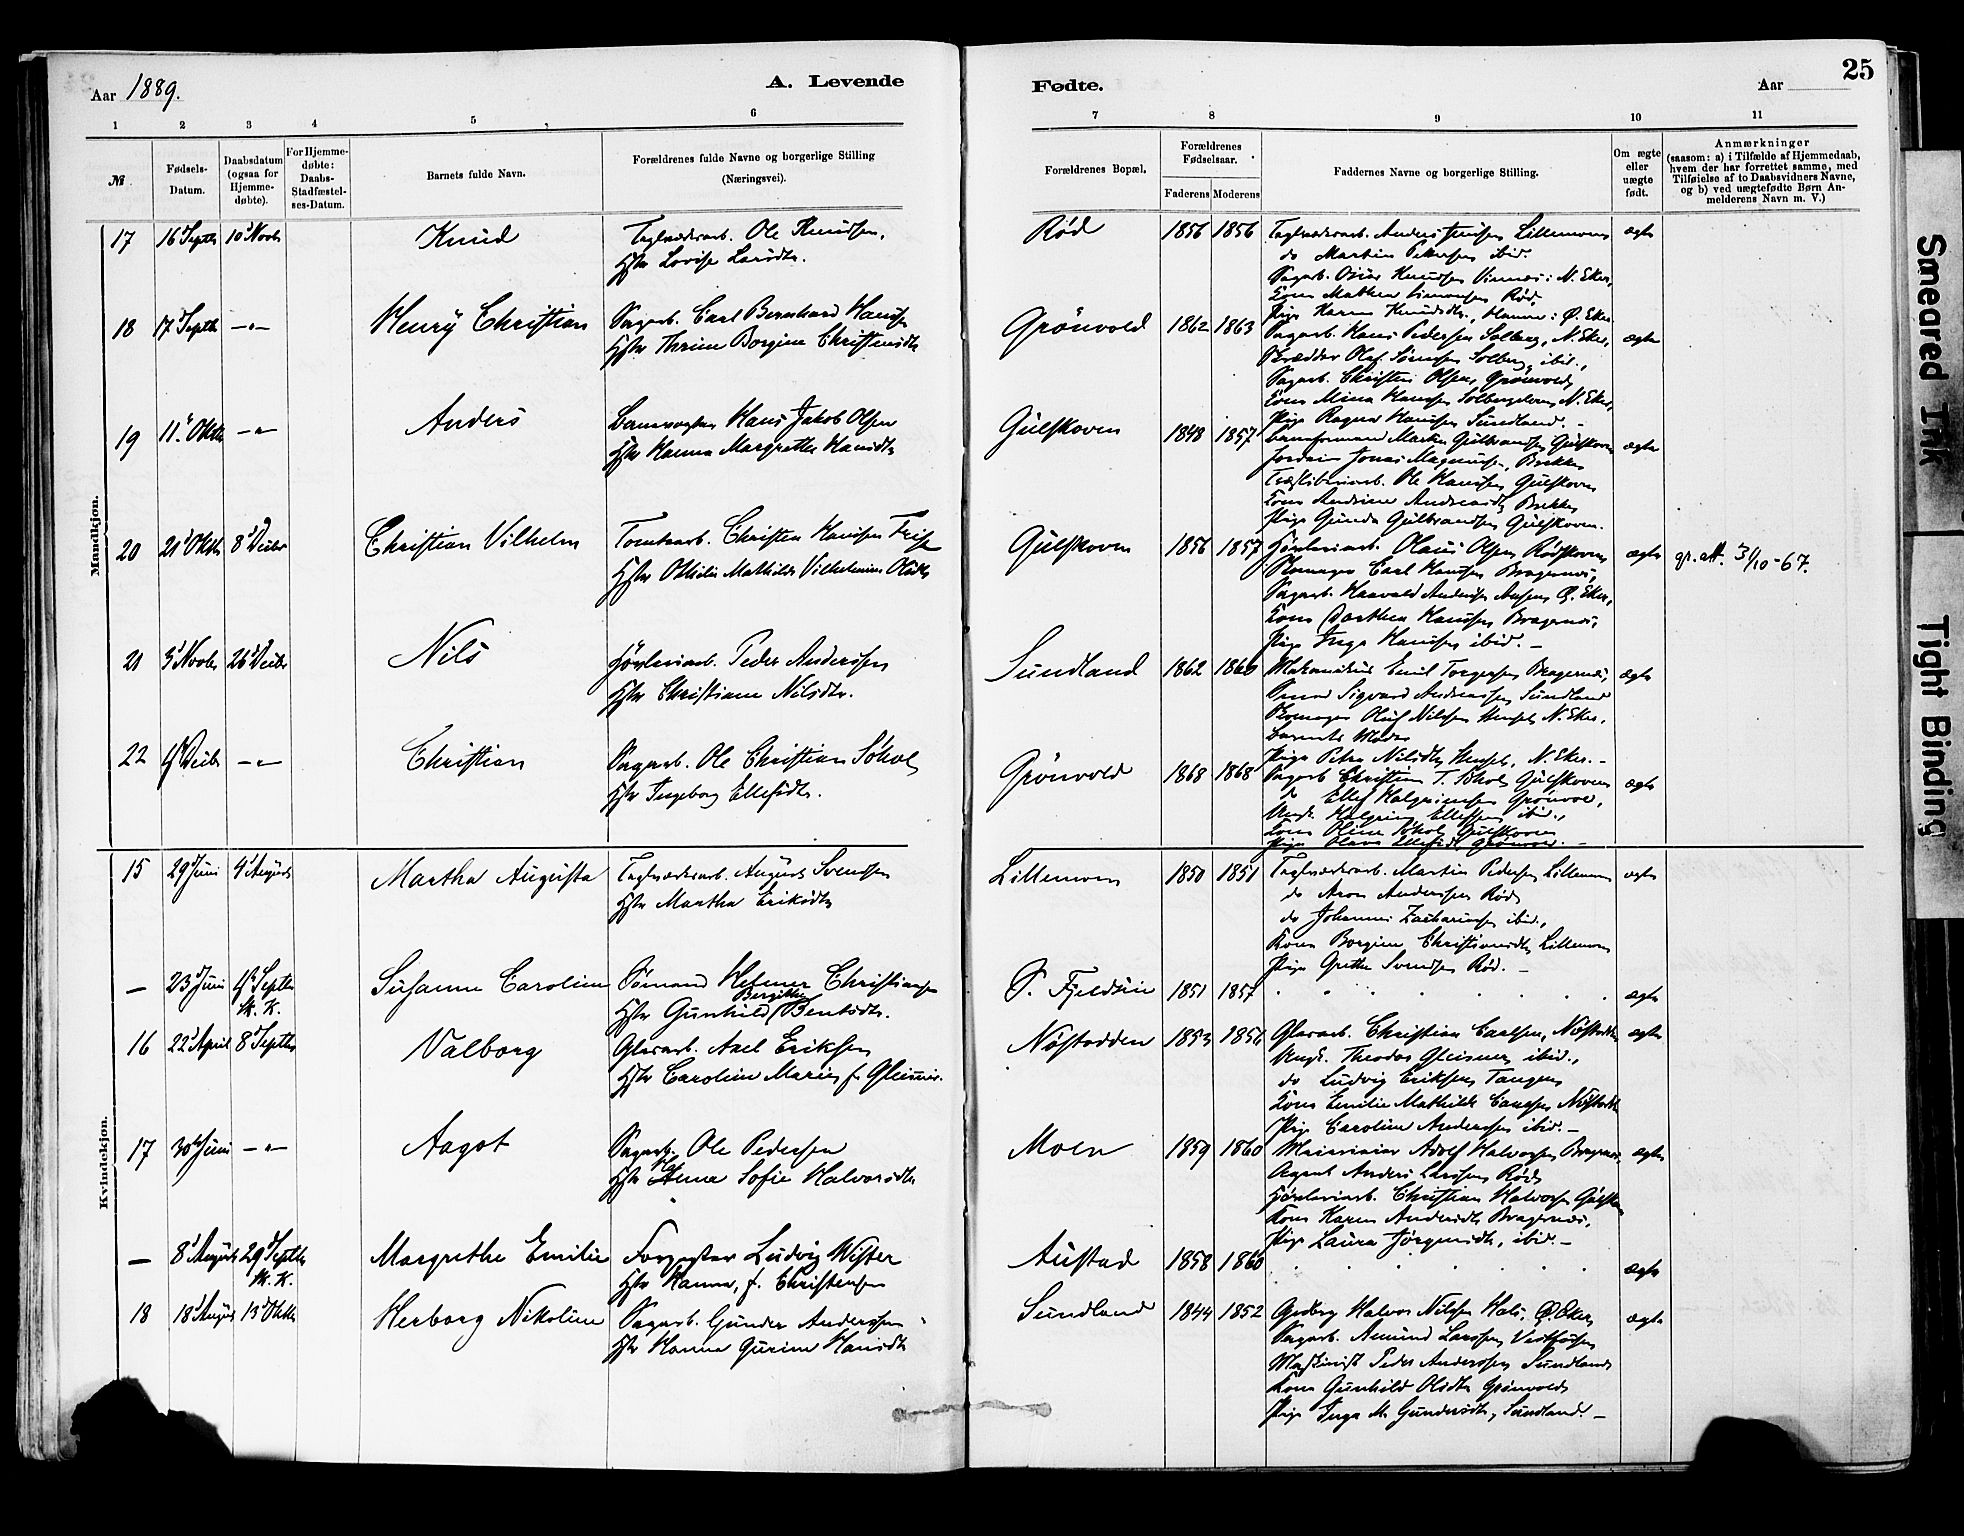 Aar 1889.
A. Levende
Fødte.
Aar
25
1 2 3 4 5 6 7 8 9 10 11
№
Fødsels-Datum.
Daabsdatum (ogsaa for Hjemme-døbte).
For Hjemme-døbte: Daabs-Stadfæstel-ses-Datum.
Barnets fulde Navn.
Forældrenes fulde Navne og borgerlige Stilling (Næringsvei).
Forældrenes Bopæl.
Forældrenes Fødselsaar.
Faderens Moderens
Faddernes Navne og borgerlige Stilling.
Om ægte eller uægte født.
Anmærkninger
(saasom: a) i Tilfælde af Hjemmedaab, hvem der har forrettet samme, med Tilføielse af to Daabsvidners Navne, og b) ved uægtefødte Børn An-melderens Navn m. V.)
Mandkjøn.
17 16 Septb 10 Novb Knud
Ole Knudsen,
Hstr Lovise Larsdtr.
Rød 1856 1856
Anders Jensen Lillemoen
do Martin Pedersen ibid.
Kone Mathea Simonsen Rød,
Pige Karen Knudsdtr,
ægte
18 17 Septb —"— Henry Christian
Sagarb. Carl Bernhard Hansen
Hstr Thrine Borgine Christensdtr
Grönvold 1862 1863
Sagarb. Hans Pedersen Solberg, N. Eker,
Skrædder Olaf Sørensen Solberg, ibid.,
Sagarb. Christen Olsen, Grönvold,
Kone Mina Hansen N. Eker,
Pige Ragna Hansen Sundland. —
ægte
19 11 Oktb —"— Anders
Banevogter Hans Jakob Olsen
Hstr Hanna Margrethe Hansdtr
Gulskoven 1848 1857
Gulbrandsen Gulskoven
Jonas Magnussen, Brekke
Ole Hansen Gulskoven
Kone Andrine Andreasdtr, Brekke
Pige Gunda Gulbrandsen Gulskoven.
ægte
20 21 Oktb 8 Decbr Christian Vilhelm
Tomtearb. Christen Hansen Friis
Hstr Othilie Mathilde Vilhelmine Olsdtr
Gulskoven 1856 1857
Høvleriarb. Olaus Olsen Rødskoven
Skomager Carl Hansen Bragernes,
Sagarb. Haavald Andersen Ø. Eker,
Kone Dorthea Hansen Bragernes,
Pige Inga Hansen ibid. —
ægte
gr. att. 31/10-67.
21 5 Novb 26 Decbr Nils
Høvleriarb. Peder Anderssen
Hstr Christiane Nilsdtr.
Sundland 1862 1860
Mekanikus Emil Torgersen Bragernes,
Smed Sigvard Andreassen Sundland
Skomager Oluf Nilssen N. Eker,
Barnets Moder
Pige Petra Nilsdtr N. Eker. —
ægte
22 Decbr —"— Christian
Sagarb. Ole Christian Søhol
Hstr Ingeborg Ellefsdtr.
Grönvold 1868 1868
Sagarb Christian T. Skol Gulskoven
do Ellef Halgrimsen Grönvold,
Ungk. Halgrim Ellefsen ibid.,
Kone Oline Gulskoven
Pige Olava Ellefsdtr Grönvold. —
ægte
Kvindekjøn.
15 29 Juni 4 August Martha Augusta
August Svendsen
Hstr Martha Eriksdtr
Lillemoen 1850 1851
Martin Pedersen Lillemoen
do Aron Andersen Rød,
do Johannes Zachariassen ibid.,
Kone Borgine Christiansdtr, Lillemoen
Pige Grethe Svendsen Rød. —
ægte
— 23 Juni Septbr k. K. Susanne Caroline
Sømand Helmer Christiansen
Hstr Gunhild Bergitte Bentsdtr.
S. Fjeldsiue 1851 1857
ægte
16 22 April 8 Septbr Valborg
Glasarb. Axel Eriksen
Hstr Caroline Marie f. Gleisner.
Nøstodden 1853 1856
Glasarb. Christian Carlsen, Nøstodden
Ungk. Theodor Gleisner, ibid.,
do Ludvig Eriksen, Tangen
Kone Emilie Mathilde Carlsen Nøstodden
Pige Caroline Anderssen ibid. —
ægte
17 30 Juni —"— Aagot
Sagarb. Ole Pedersen
Hstr Hanna Sofie Halvorsdtr
Moen 1859 1860
Adolf Halvorsen Bragernes,
Agent Anders Larssen Rød,
Høvleriarb. Christian Halvorsen Gulskoven
Kone Karen Andersdtr Bragernes,
Pige Laura Jörgensdtr, ibid. —
ægte
— 8 August 29 Septbr k. K. Margrethe Emilie
Forgylder Ludvig Wister
Hstr Hanna, f. Christensen
Austad 1858 1860
ægte
18 18 August 13 Oktbr Herborg Nikoline
Sagarb. Gunder Anderssen
Hstr Hanna Gurine Hansdtr
Sundland 1844 1852
Grdbrg Halvor Nilssen Hals, Ø. Eker,
Sagarb. Amund Larssen Vestfossen
Maskinist Peder Anderssen Sundland
Kone Gunhild Olsdtr Grönvold
Pige Inga M. Gundersdtr, Sundland. —
ægte
Smeared Ink
Tight Binding